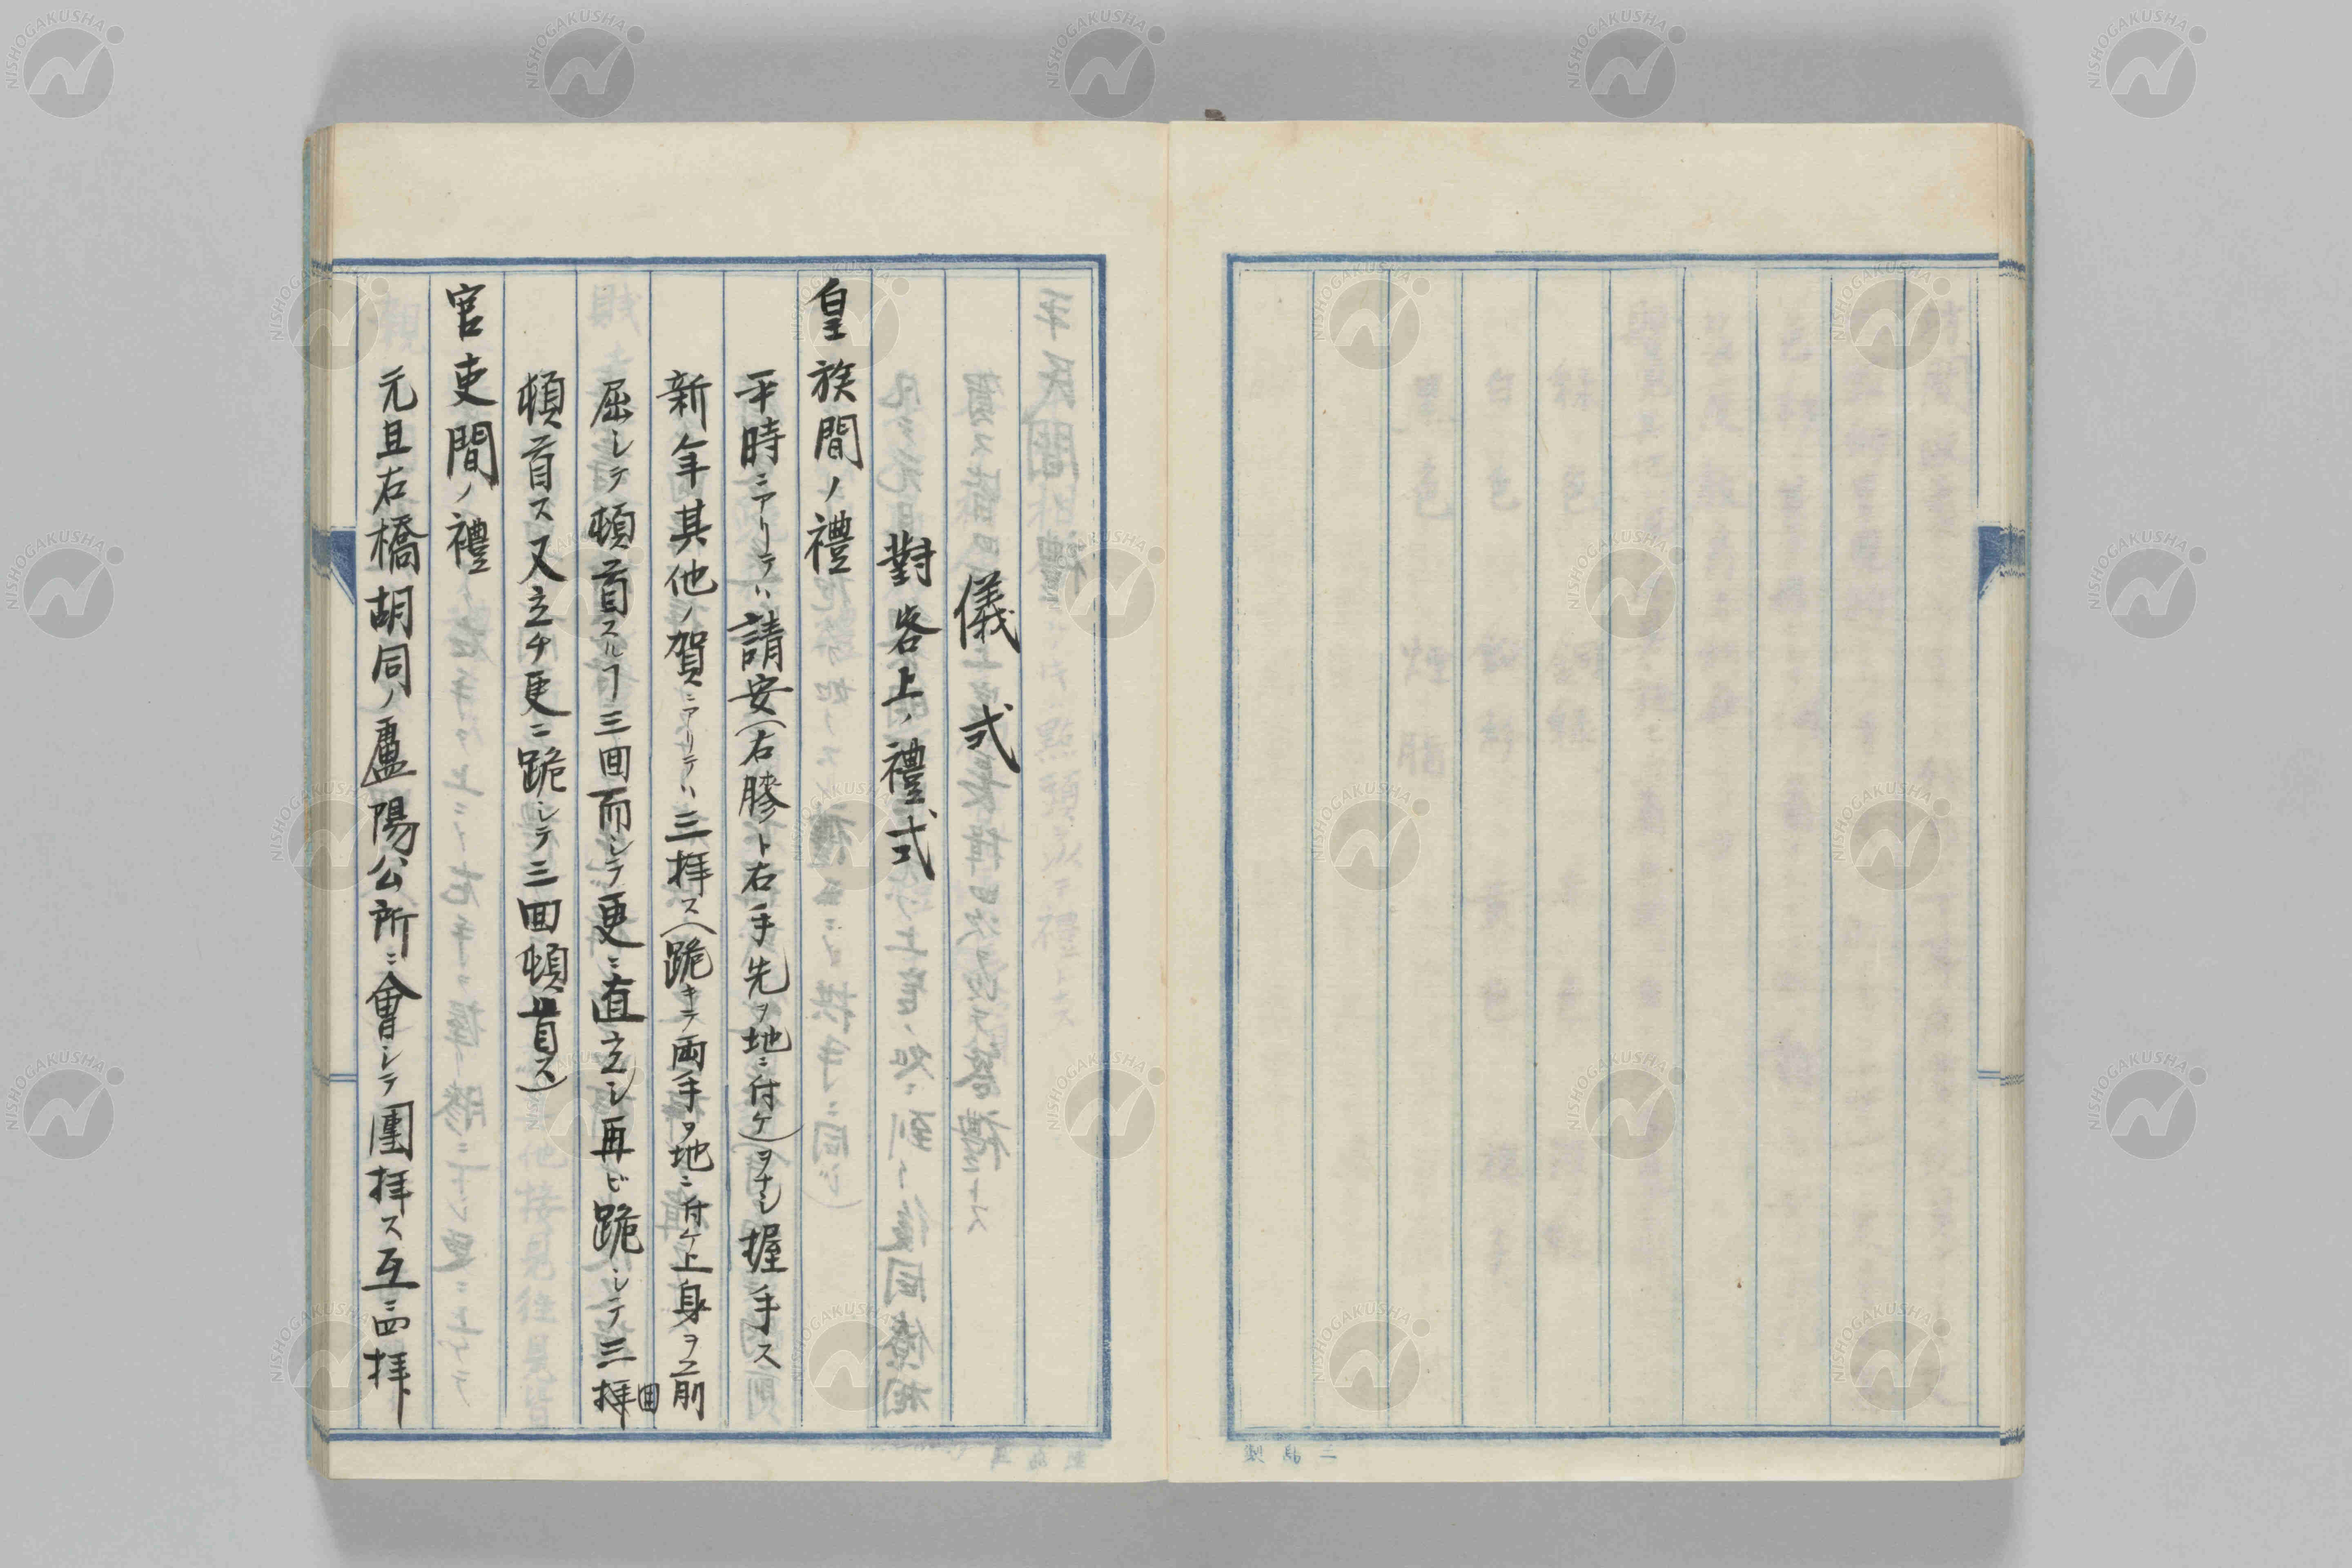 儀式
對客上ノ禮式
皇族間ノ禮
平時ニアリテハ請安(右膝ト右手先ヲ地ニ付ケ)ヲナシ握手ス
新年其他ノ賀ニアリテハ三拝ス(跪キテ両手ヲ地ニ付ケ上身ヲ前
屈シテ頓首スルヿ三回而シテ更ニ直立シ再ビ跪シテ三回
頓首ス又立チ更ニ跪シテ三回頓首ス)
官吏間ノ禮
元旦右橋胡同ノ盧陽公所ニ會シテ團拝ス互ニ四拝